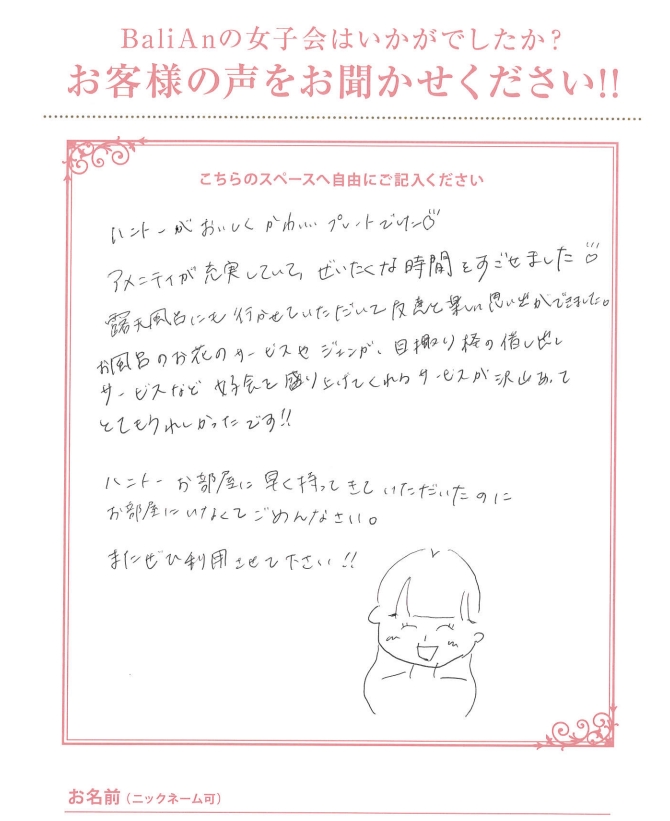 BaliAnの女子会はいかがでしたか?
お客様の声をお聞かせください!!
こちらのスペースへ自由にご記入ください
ハニトーがおいしくかわいいプレートでした♡
アメニティが充実していて、ぜいたくな時間をすごせました♡
露天風呂にも行かせていただいて友達と楽しい思い出ができました。
お風呂のお花のサービスやジェンガ、自撮り棒の貸し出し
サービスなど女子会を盛り上げてくれるサービスが沢山あって
とてもうれしかったです!!
ハニトーお部屋に早く持ってきていただいたのに
お部屋にいなくてごめんなさい。
またぜひ利用させて下さい!!
お名前(ニックネーム可)